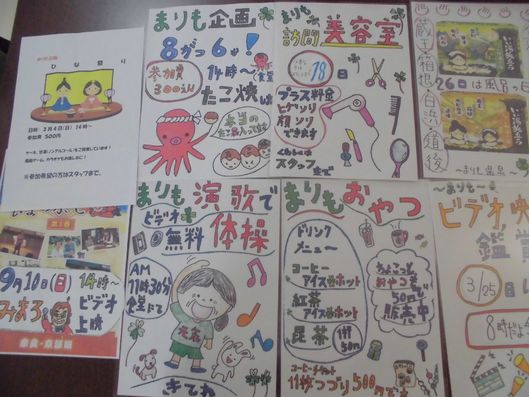 ひな祭り
日時 3月4日(日) 14時〜
参加費 500円
※参加希望の方はスタッフまで。
まりも企画
8がつ6せ!
参加費
300えん
14時〜
食堂
たこ焼
本当の
たこ入ってます
まりも
訪問
美容室
18
日
プラス料金
ヒゲソリ
顔ソリ
できます
くわしくは
スタッフ
まで
蔵王・箱根・白浜・道後
26日は風呂の日
〜まりも温泉〜
9月10日(日)
14時〜
ビデオ
上映
奈良・京都編
まりも演歌で
ビデオ
無料
体操
AM
11時30分
食堂にて
きてね
まりもおやつ
ドリンク
メニュー〜
コーヒー
アイスorホット
紅茶
アイスorホット
昆茶
1杯
50円
ちょこっと
おやつも
50円で
販売中
コーヒーチケット
11枚つづり500円
〜まりも〜
ビデオ映
鑑賞
3/25日
8時だよ